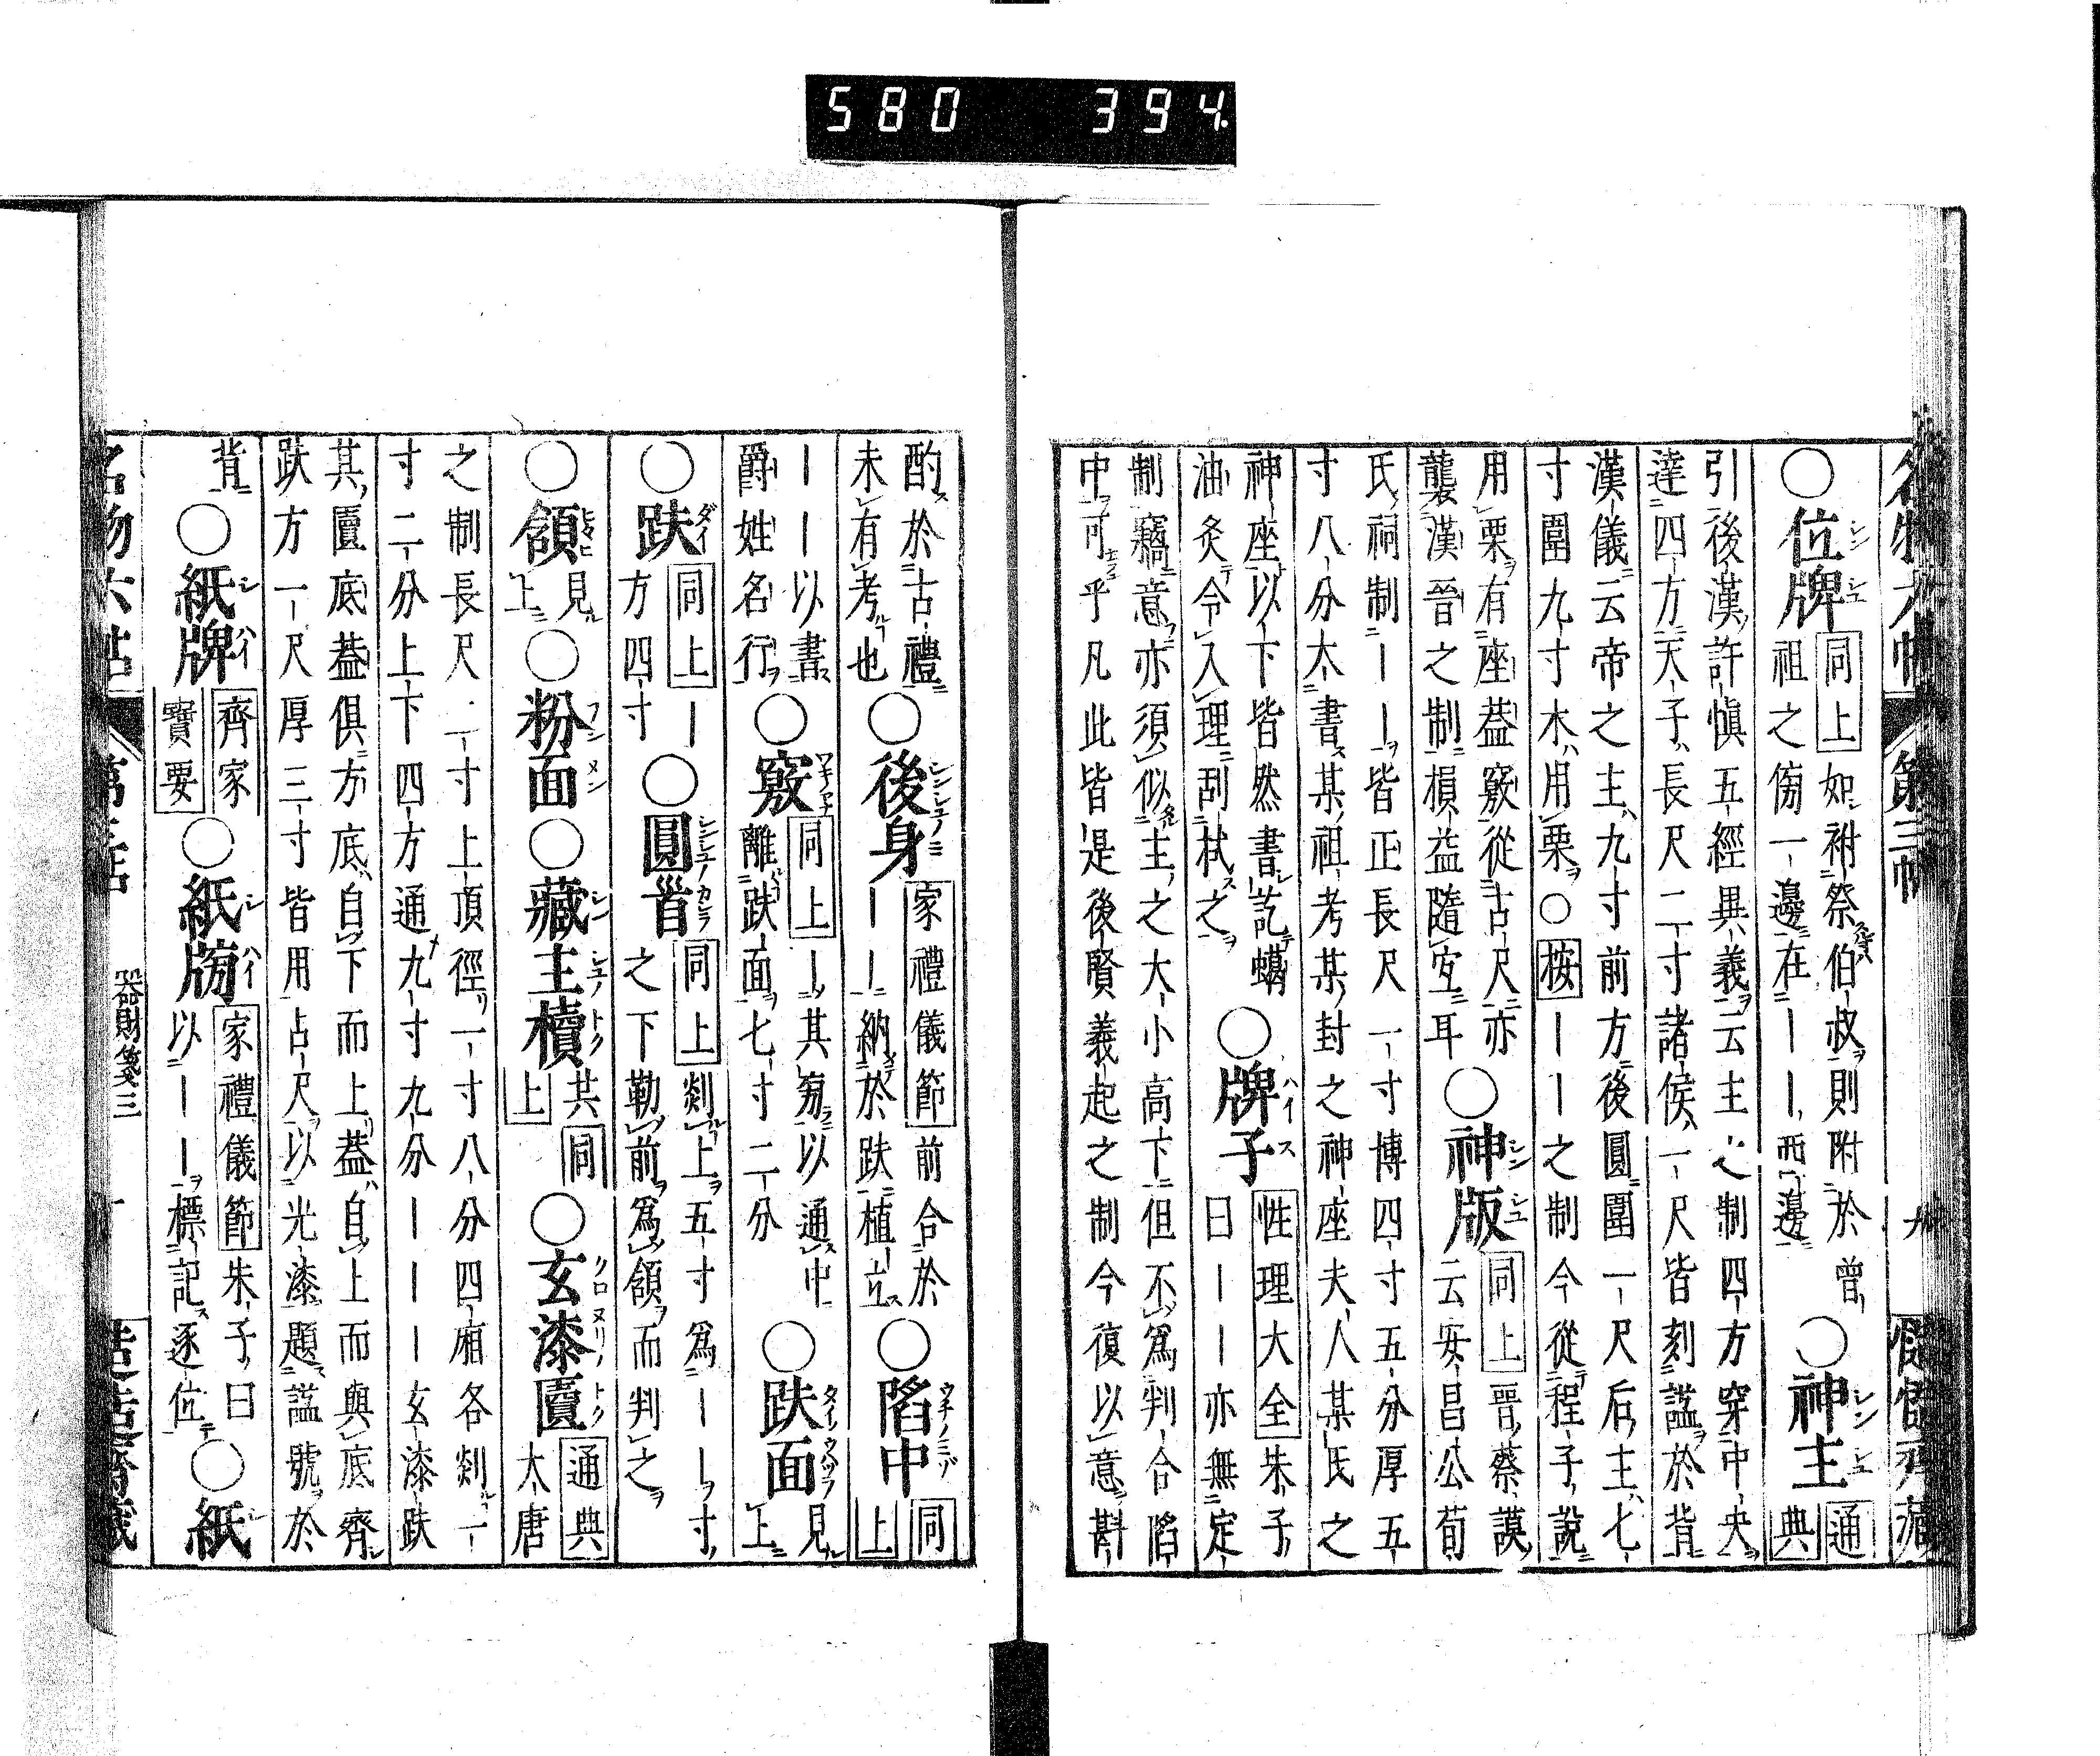 580 394
名物六帖 第三帖 九
○位牌 同上 如祔祭伯叔則附於曾
祖之傍一邊在――西邊 ○神主 通典
引後漢許慎五經異義云主之制四方穿中央
達四方天子長尺二寸諸侯一尺皆刻謚於背
漢儀云帝之主九寸前方後圓圍一尺后主七
寸圍九寸木用栗○按――之制今從程子說
用栗有座蓋竅從古尺亦
襲漢晉之制損益隨宜耳 ○神版 同上 晉蔡謨
云安昌公荀
氏祠制――皆正長尺一寸博四寸五分厚五
寸八分大書某祖考某封之神座夫人某氏之
神座以下皆然書訖蠟
油炙令入理刮拭之 ○牌子 性理大全 朱子
曰――亦無定
制竊意亦須似主之大小高下但不爲判合陷
中可乎凡此皆是後賢義起之制今復以意斟
酌於古禮
未有考也 ○後身 家禮儀節 前合於
――納於趺植立 ○陷中 同上
――以書
爵姓名行 ○竅 同上 ―其旁以通中
離趺面七寸二分 ○趺面 見上
○趺 同上 ―
方四寸 ○圓首 同上 剡上五寸爲――寸
之下勒前爲頷而判之
○頷 見上 ○粉面 ○藏主櫝 共同上 ○玄漆匵 通典
大唐
之制長尺一寸上頂徑一寸八分四廂各剡一
寸二分上下四方通九寸九分―――玄漆趺
其匵底蓋俱方底自下而上蓋自上而與底齊
趺方一尺厚三寸皆用古尺以光漆題謚號於
背 ○紙牌 齊家寶要 ○紙牓 家禮儀節 朱子曰
以――標記逐位 ○紙
名物六帖 第三帖 器財箋三